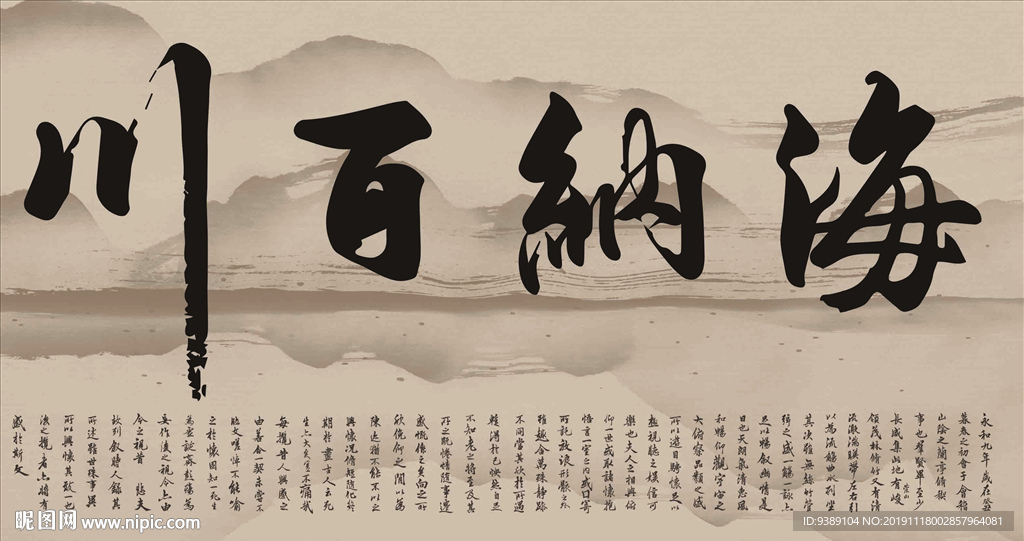 海納百川
永和九年歲在癸丑
暮春之初會于會稽
山陰之蘭亭脩禊
事也羣賢畢至少
長咸集此地有崇山峻
領茂林脩竹又有清
流激湍暎帶左右引
以為流觴曲水列坐
其次雖無絲竹管
弦之盛一觴一詠亦
足以暢敘幽情是
日也天朗氣清惠風
和暢仰觀宇宙之
大俯察品類之盛
所以遊目騁懷足以
極視聽之娛信可
樂也夫人之相與俯
仰一世或取諸懷抱
悟言一室之內或因寄
所託放浪形骸之外
雖趣舍萬殊靜躁
不同當其欣於所遇
暫得於己怏然自足
不知老之將至及其
所之既惓情隨事遷
感慨係之矣向之所
欣俛仰之間以為
陳迹猶不能不以之
興懷況脩短隨化終
期於盡古人云死
生亦大矣豈不痛哉
每攬昔人興感之
由若合一契未嘗不
臨文嗟悼不能喻
之於懷固知一死生
為虛誕齊彭殤為
妄作後之視今亦由
今之視昔 悲夫
故列敘時人錄其
所述雖世殊事異
所以興懷其致一也
後之攬者亦將有
感於斯文
昵图网 www.nipic.com
ID:9389104 NO:20191118002857964081